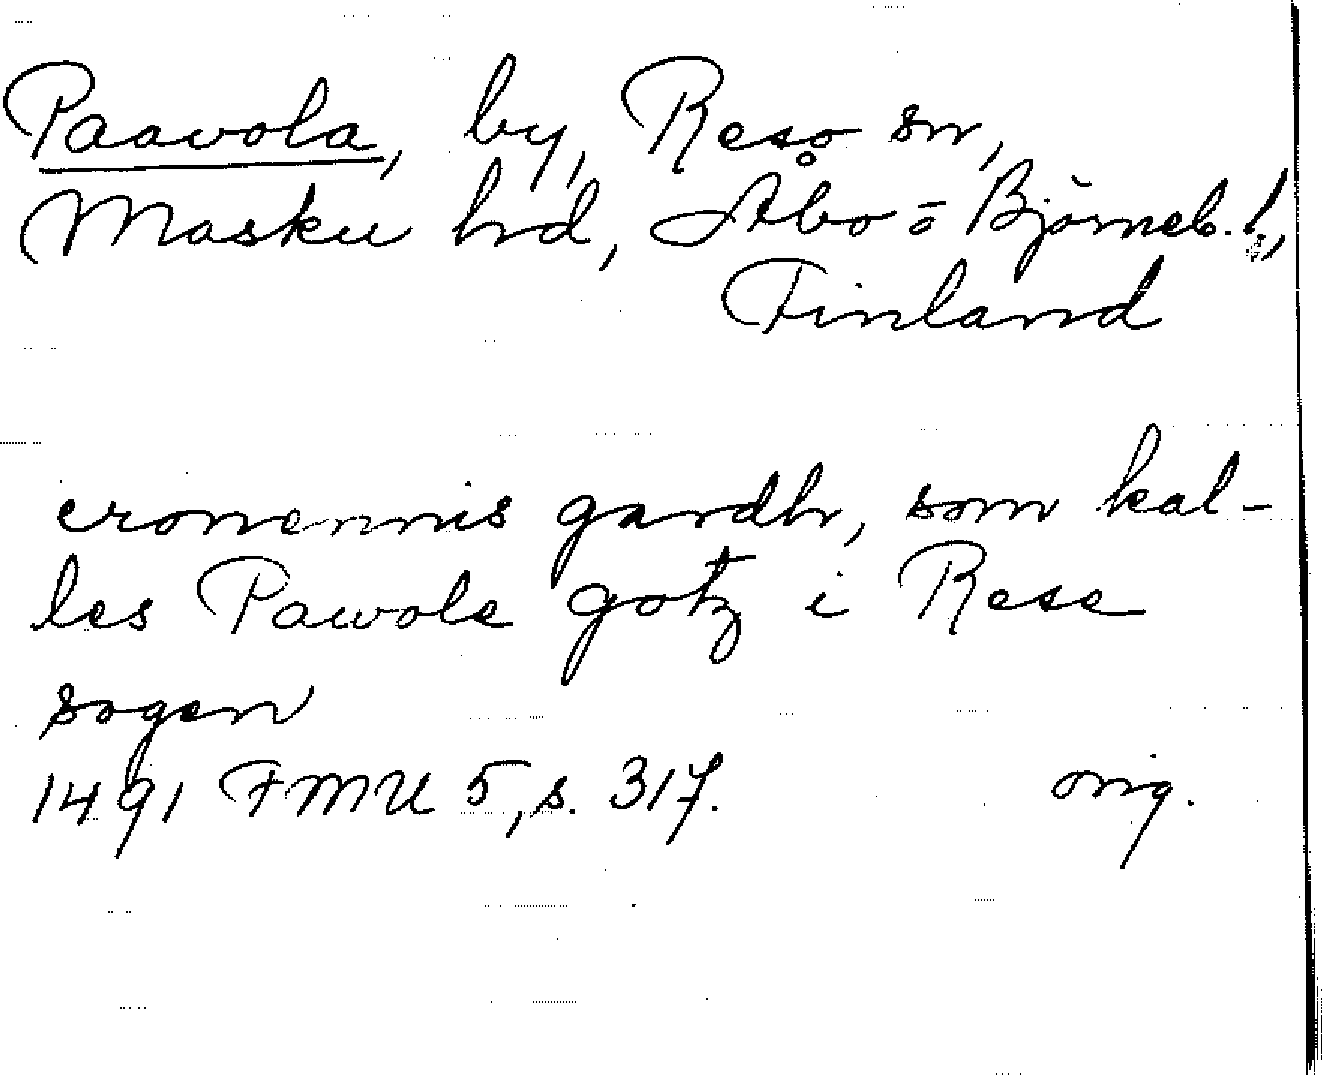 Paavola, by, Reso sn,
Masku hrd, Åbo-ö-Björneb. l.,
Finland
cronennis gardh, som kal-
les Pawole gotz i Rese
sogen
1491 FMU 5, s. 317. orig.